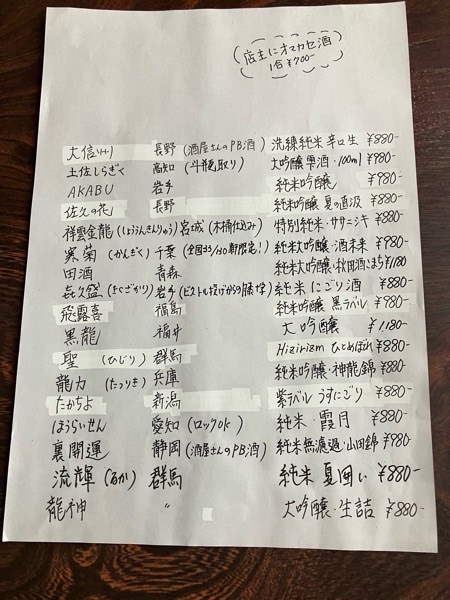 店主にオマカセ酒
1合¥700-
大信州 長野 (酒屋さんのPB酒) 洗練純米辛口生 ¥880-
土佐しらぎく 高知 (斗瓶取り) 大吟醸雫酒・100ml ¥980-
AKABU 岩手 純米吟醸 ¥980-
佐久の花 長野 純米吟醸 夏の直汲 ¥880-
祥雲金龍(しょううんきんりゅう) 宮城 (木桶仕込み) 特別純米・ササニシキ ¥880-
寒菊 (かんぎく) 千葉 (全国35/130軒限定!) 純米大吟醸・酒未来 ¥980-
田酒 青森 純米大吟醸・秋田酒こまち ¥1180
㐂久盛 (きくざかり) 岩手 純米にごり酒 ¥880-
飛露喜 福島 純米吟醸 黒ラベル ¥980-
黒龍 福井 大吟醸 ¥1180-
聖 (ひじり) 群馬 Hizirizm ひとめぼれ ¥880-
龍力 (たつりき) 兵庫 純米吟醸・神龍錦 ¥880-
たかちよ 新潟 紫ラベル うすにごり ¥880-
ほうらいせん 愛知 (ロックOK) 純米・霞月 ¥880-
裏開運 静岡 (酒屋さんのPB酒) 純米無濾過・山田錦 ¥980-
流輝 (るか) 群馬 純米 夏囲い ¥880-
龍神 〃 大吟醸・生詰 ¥880-